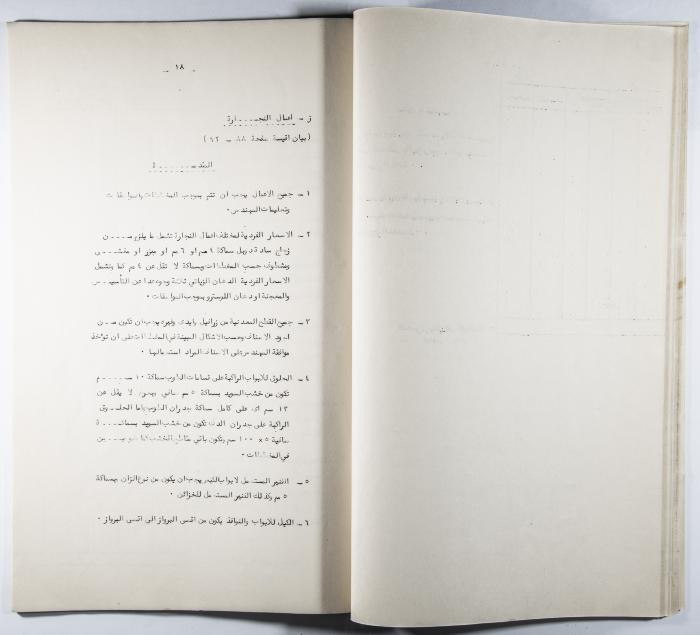 - ١٨ -
ز - اعمال النجـــارة
(بيان اقيسة صفحة ٨٨ - ٩٢)
المقدمـــــة
١ - جميع الاعمال يجب ان تتم بموجب المخططات والمواصفات
وتعليمات المهندس.
٢ - الاسعار الفردية لمختلف اعمال النجارة تشمل ما يلزم مـــن
زجاج سادة دوبل سماكة ٤ مم او ٦ مم او مغشـــى
ومشطوف حسب المخططات وبسماكة لا تقل عن ٤ مم كما وتشمل
الاسعار الفردية الدهان الزياتي ثلاثة وجوه عدا عن التأسيــس
والمعجنة او دهان اللوسترو بموجب المواصفات.
٣ - جميع القطع المعدنية من زرافيل وايدي وغيره يجب ان تكون مـــن
اجود الاصناف وحسب الاشكال المبينة في المخططات على ان تؤخذ
موافقة المهندس على الاصناف المراد استعمالها.
٤ - الحلوق للابواب الراكبة على قساطات الطوب سماكة ١٠ ســـم
تكون من خشب السويد بسماكة ٥ سم صافي وبعرض لا يقل عن
١٣ سم اي على كامل سماكة جدران الطوب واما الحلـــوق
الراكبة على جدران تكون من خشب السويد بسماكـــة
صافية ٥ × ١٠٠ سم وتكون باقي مقاطع الخشب كما هو مبيـــن
في المخططات.
٥ - القشر المستعمل لابواب الكبس يجب ان يكون من نوع الزان وبسماكة
٥ مم وكذلك القشر المستعمل للخزائن.
٦ - الكيل للابواب والنوافذ يكون من اقصى البرواز الى اقصى البرواز.